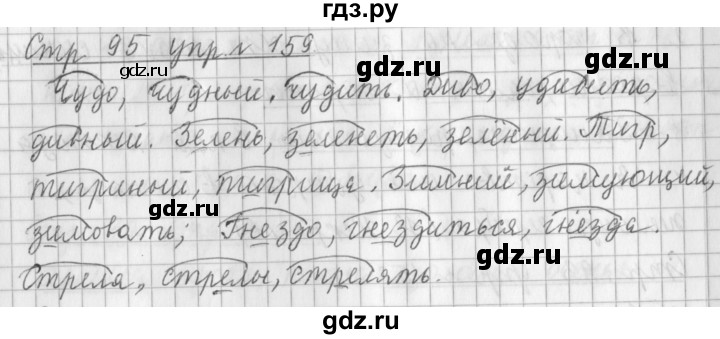 гдз.ру
Стр 95 упр № 159
gdz.ru
gdz.ru
Чудо, чудный, чудить. Диво, удивить,
дивный. Зелень, зеленеть, зелёный. Тигр,
тигриный, тигрица. Зимний, зимующий,
зимовать; Гнездо, гнездиться, гнёзда.
Стрела, стрелы, стрелять.
gdz.ru
gdz.ru
gdz.ru